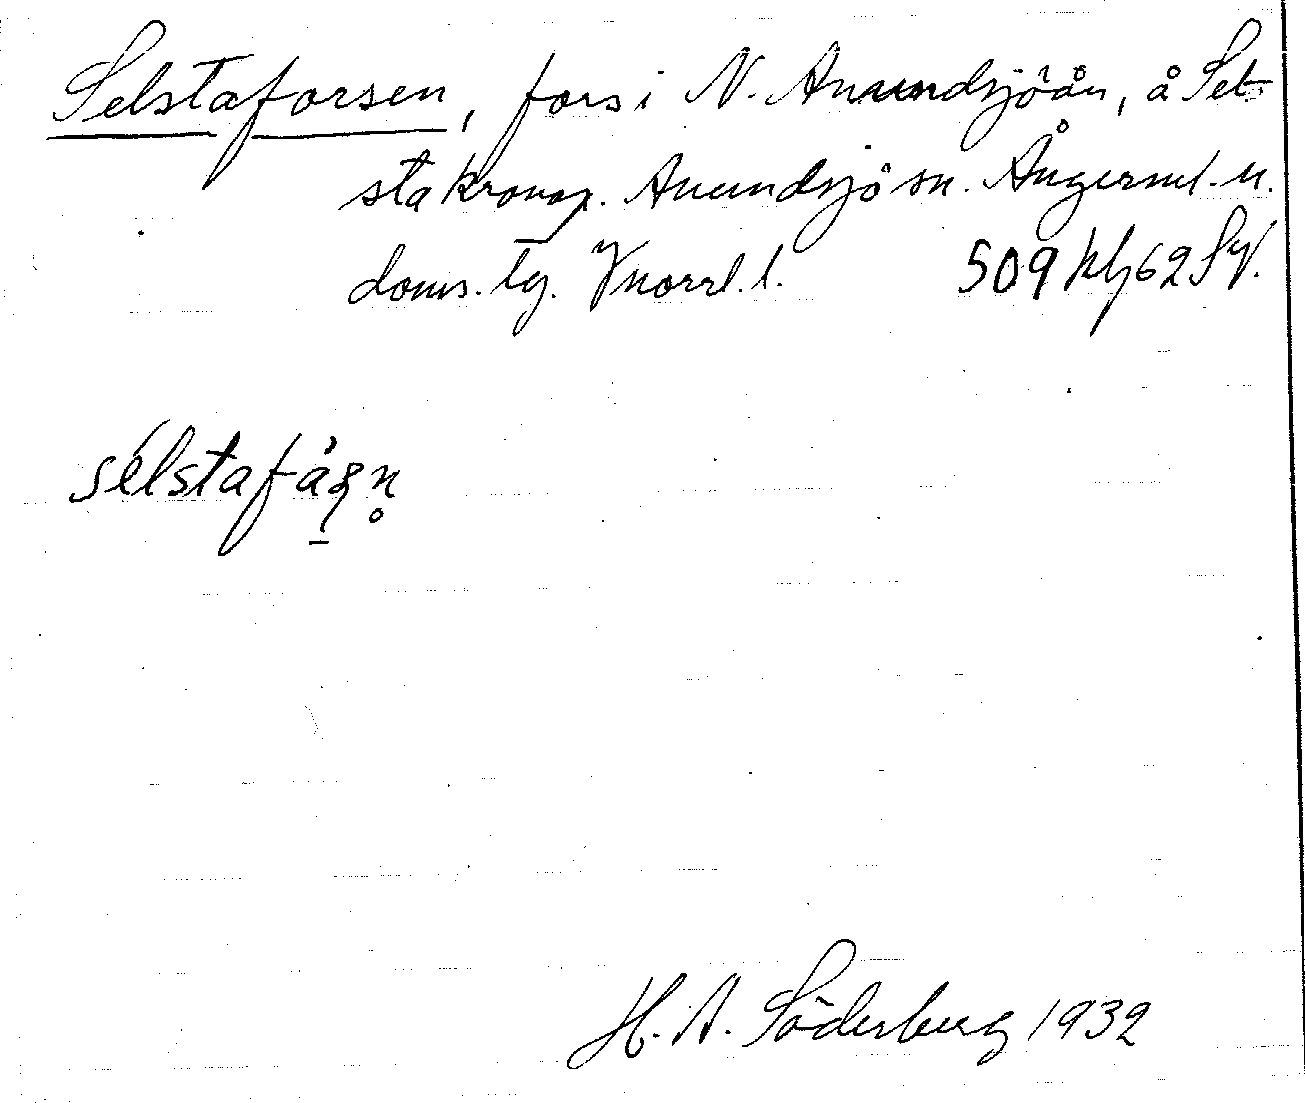 Selstaforsen, fors i N. Anundsjöån, å Sel-
sta kronop. Anundsjö sn. Ångerml. n.
doms. tg. Vnorrl. l. 509 klg 62 Sy.
sélstafåʂn̥
H. A. Söderberg 1932